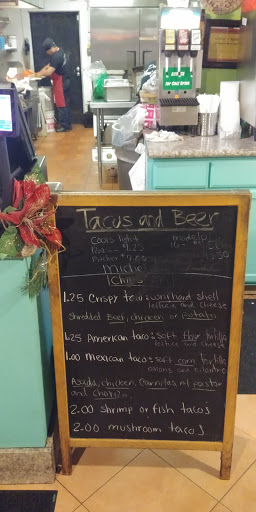 Tacos and Beer
Coors light modelo
1.25 Crispy taco: corn hard shell
lettuce and cheese
Shredded Beef, chicken or potato
1.25 American taco: soft flour tortilla
lettuce and cheese
1.00 Mexican taco: soft corn tortilla
onions and cilantro
Asada, chicken, Carnitas, al pastor
and chorizo
2.00 shrimp or fish tacos
2.00 mushroom tacos